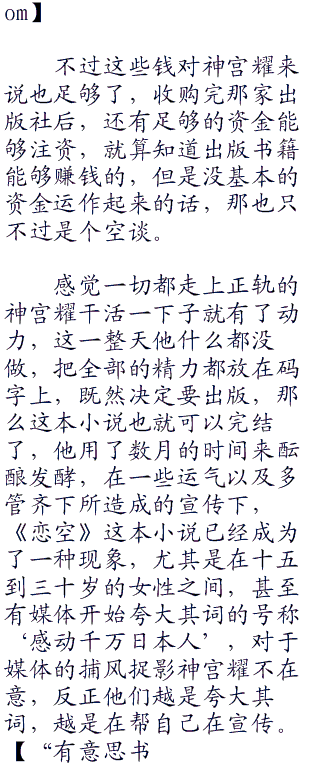 om】
不过这些钱对神宫耀来
说也足够了，收购完那家出
版社后，还有足够的资金能
够注资，就算知道出版书籍
能够赚钱的，但是没基本的
资金运作起来的话，那也只
不过是个空谈。
感觉一切都走上正轨的
神宫耀干活一下子就有了动
力，这一整天他什么都没
做，把全部的精力都放在码
字上，既然决定要出版，那
么这本小说也就可以完结
了，他用了数月的时间来酝
酿发酵，在一些运气以及多
管齐下所造成的宣传下，
《恋空》这本小说已经成为
了一种现象，尤其是在十五
到三十岁的女性之间，甚至
有媒体开始夸大其词的号称
‘感动千万日本人’，对于
媒体的捕风捉影神宫耀不在
意，反正他们越是夸大其
词，越是在帮自己在宣传。
【“有意思书